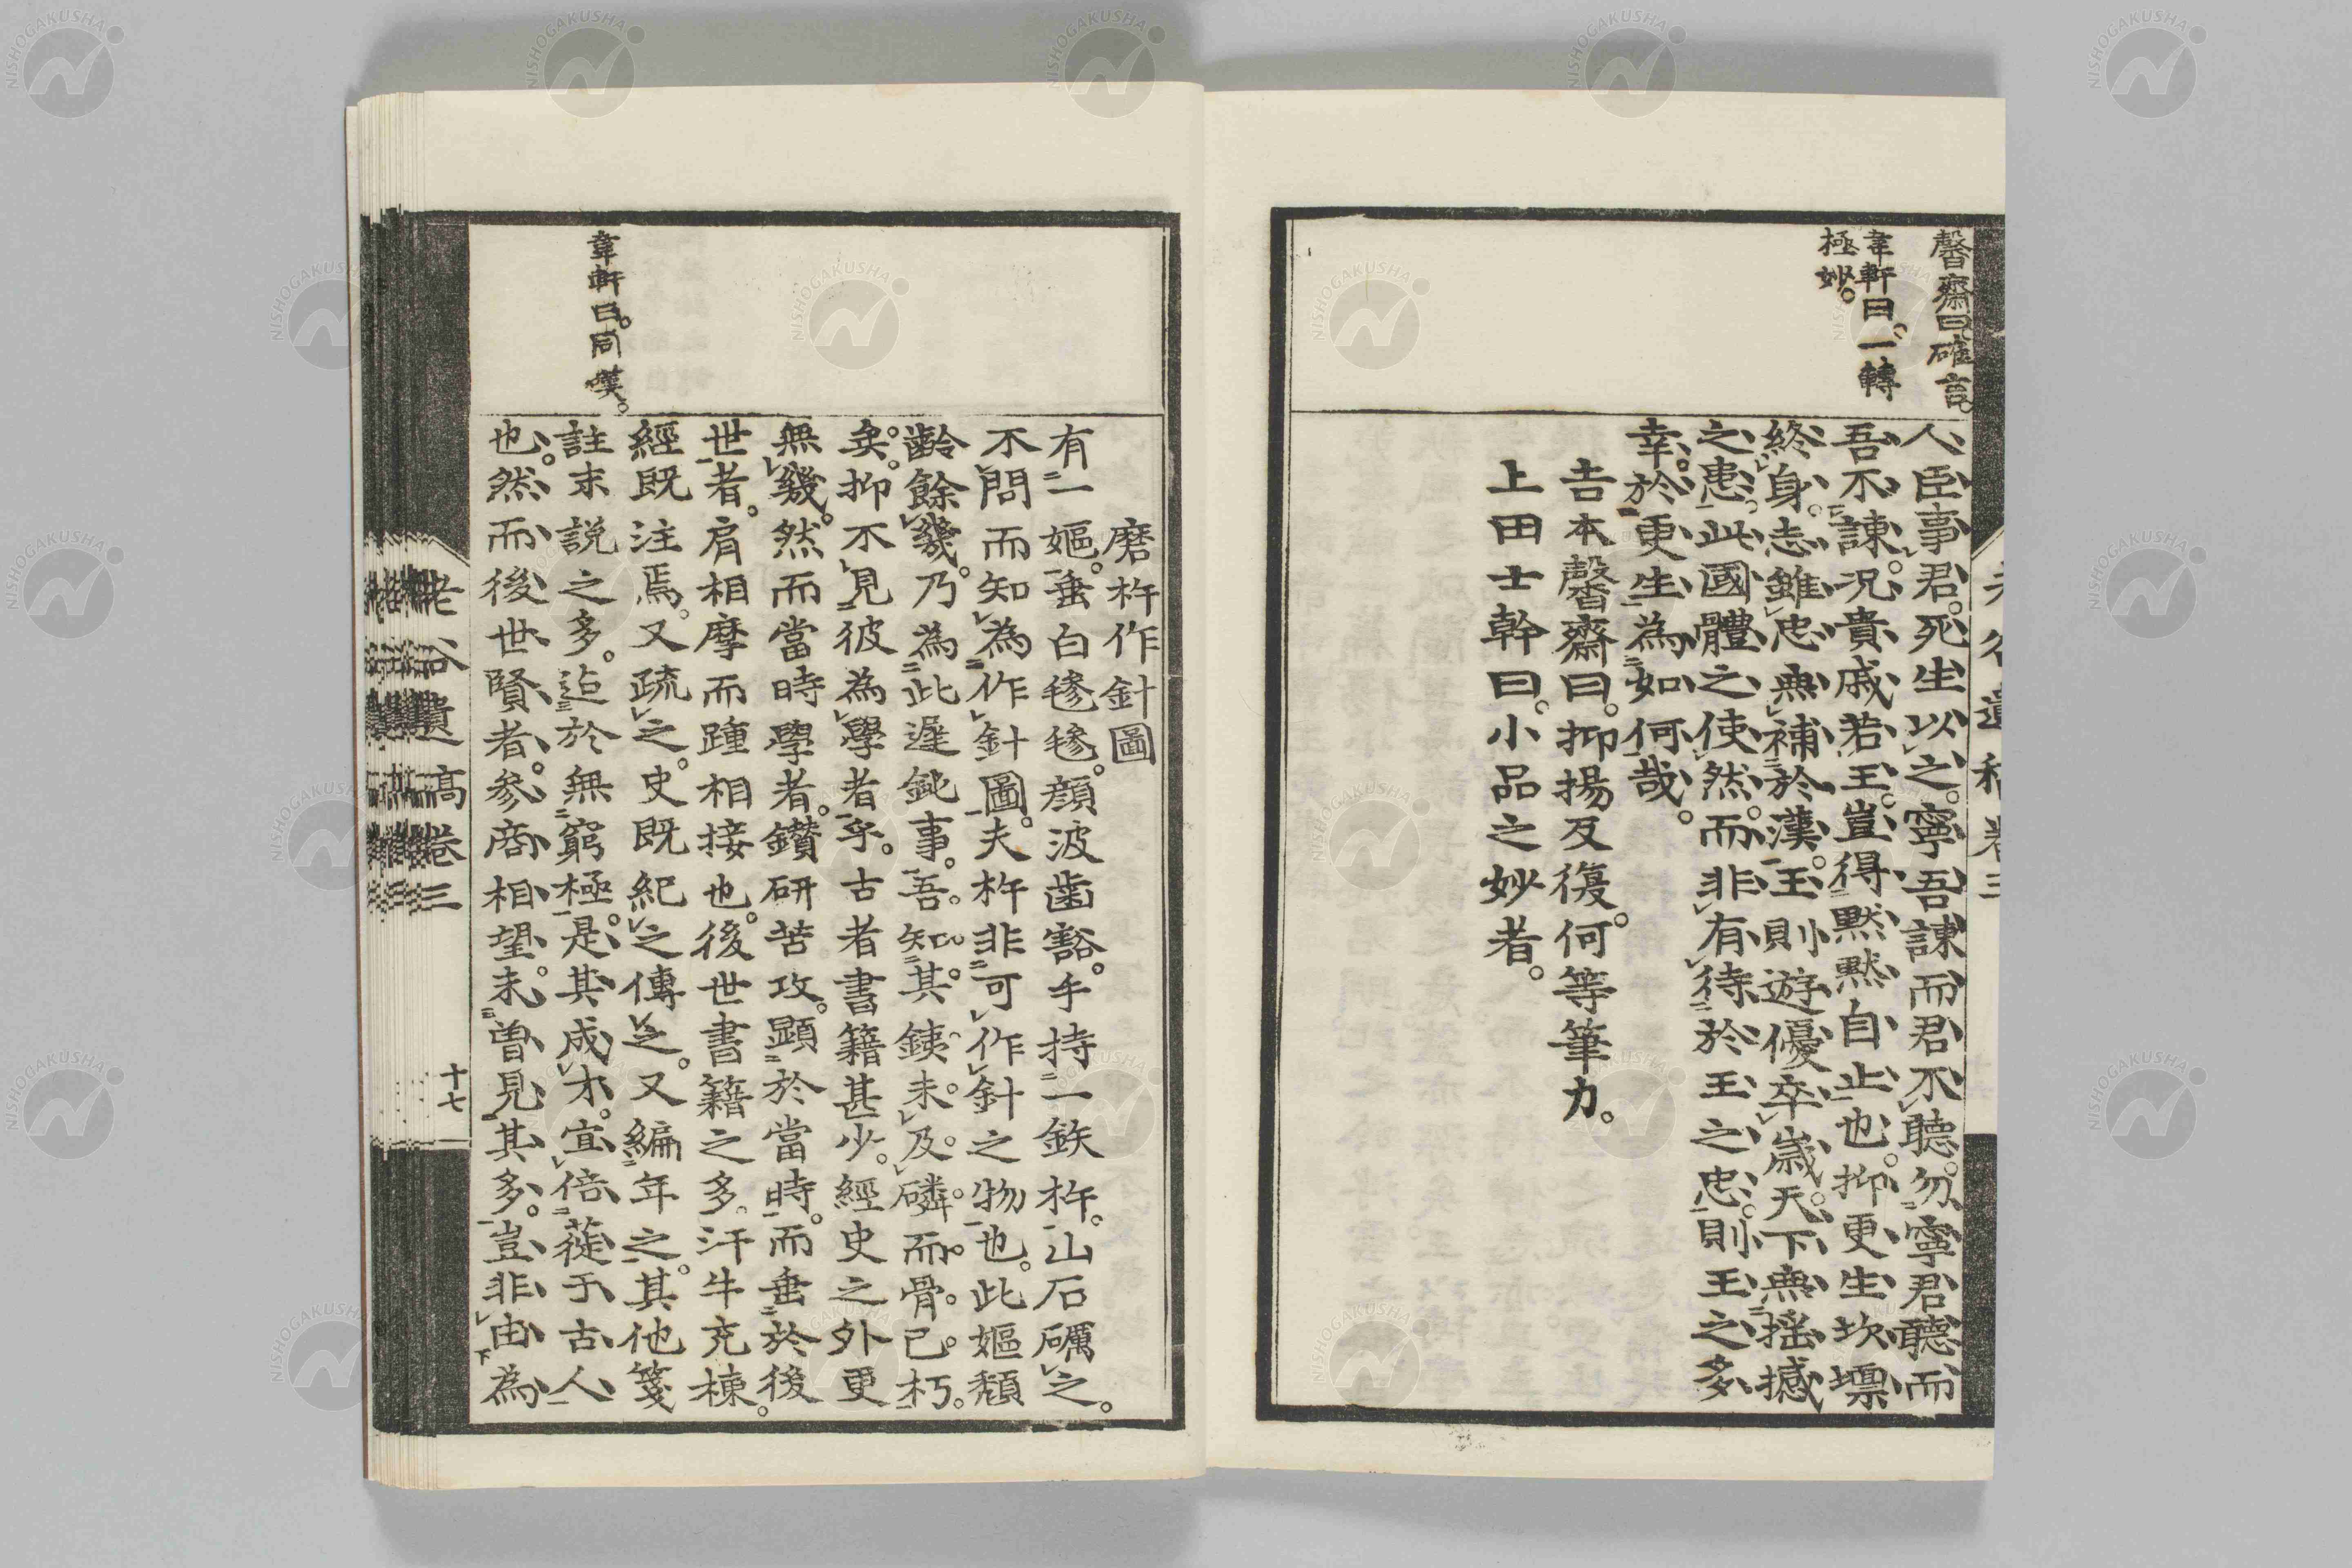 馨齋曰確言
韋軒曰。一轉
極妙。
人臣事君。死生以之。寧吾諫而君不聽。勿寧君聽而
吾不諫。况貴戚若王。豈得默默自止也。抑更生坎壈
終身。志雖忠無補於漢。王則遊優卒歲。天下無搖撼
之患。此國體之使然。而非有待於王之忠。則王之多
幸。於更生為如何哉。
吉本馨齋曰。抑揚反復。何等筆力。
上田士幹曰。小品之妙者。
韋軒曰。同嘆。
磨杵作針圖
有一嫗。垂白毿毿。顔波齒豁。手持一鉃杵。山石礪之。
不問而知為作針圖。夫杵非可作針之物也。此嫗頽
齡餘幾。乃為此遲鈍事。吾知其銕未及磷。而骨已朽
矣。抑不見彼為學者乎。古者書籍甚少。經史之外更
無幾。然而當時學者。鑚研苦攻。顕於當時。而垂於後
世者。肩相摩而踵相接也。後世書籍之多。汗牛充棟。
經既注焉。又疏之。史既紀之傳之。又編年之。其他箋
註末說之多。迨於無窮極。是其成才。宜倍蓰于古人
也。然而後世賢者。參商相望。未曽見其多。豈非由為
老谷遺髙卷三
十七